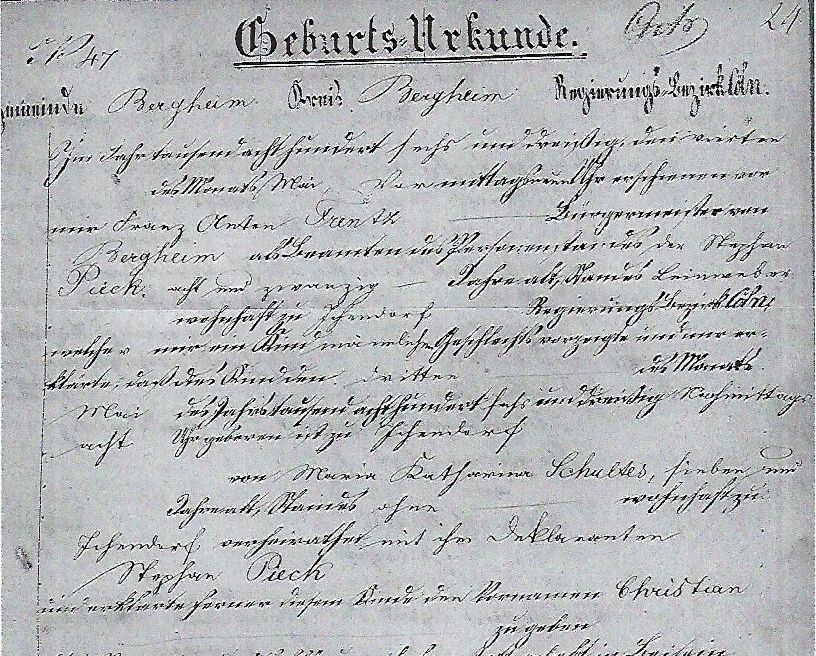 No 47 Geburts-Urkunde. 24
Gemeinde Bergheim Kreis Bergheim Regierungs-Bezirk Cöln.
Im Jahr tausend acht hundert sechs und dreißig, den vierten
des Monats Mai, Vor mittags neun Uhr erschienen vor
mir Franz Anton Frentz Bürgermeister von
Bergheim als Beamten des Personenstandes der Stephan
Pieck, acht und zwanzig Jahre alt, Standes Leinweber
wohnhaft zu Ichendorf Regierungsbezirk Cöln,
welcher mir ein Kind männlichen Geschlechts vorzeigte und mir er-
klärte, daß dies Kind den dritten des Monats
Mai des Jahrs tausend acht hundert sechs und dreißig Nachmittags
acht Uhr geboren ist zu Ichendorf
von Maria Katharina Schultes, sieben und
Jahre alt, Standes ohne wohnhaft zu
Ichendorf verheirathet mit ihm Deklaranten
Stephan Pieck
und erklärte ferner diesem Kinde den Vornamen Christian
zu geben
in Beisein